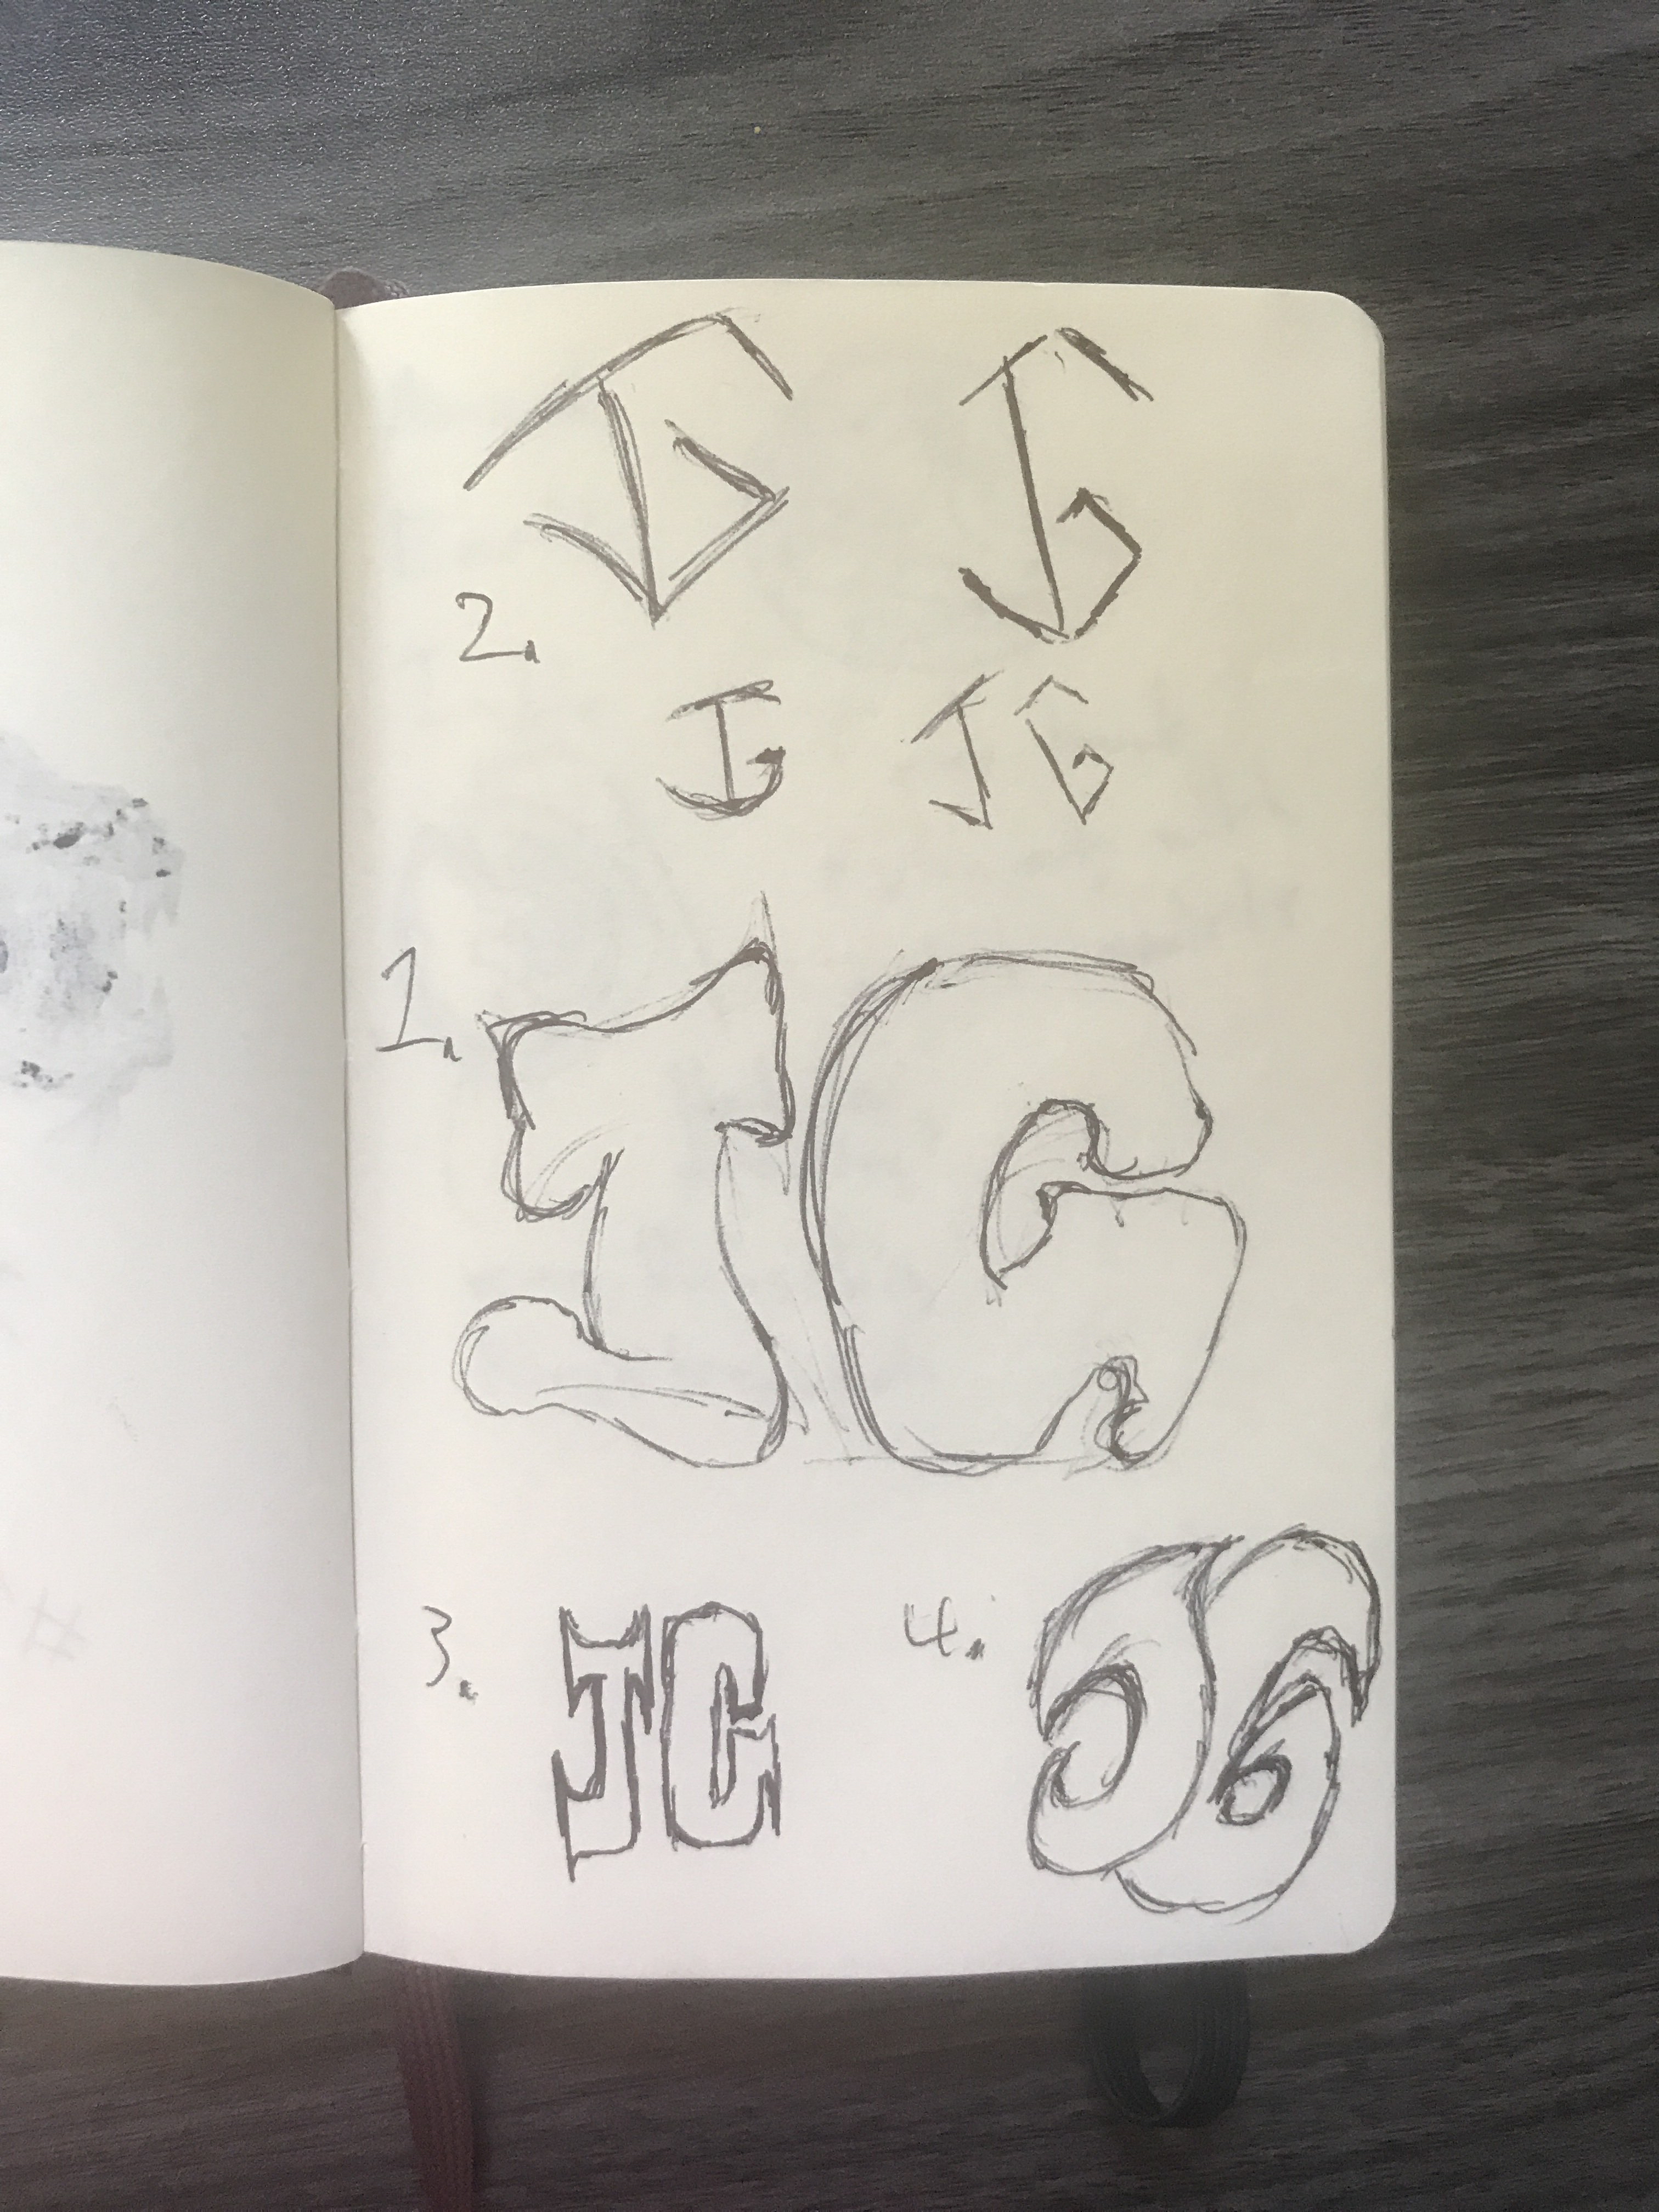 JG JG
2.
JG JG
1. JG
3. JG 4. JG